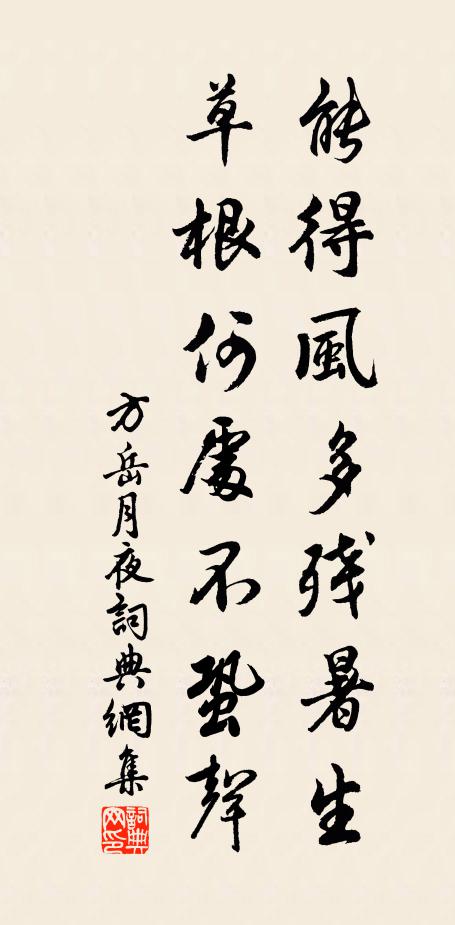 能得風多殘暑生
草根何處不蛩聲
方岳月夜詞典網集
詞典網印